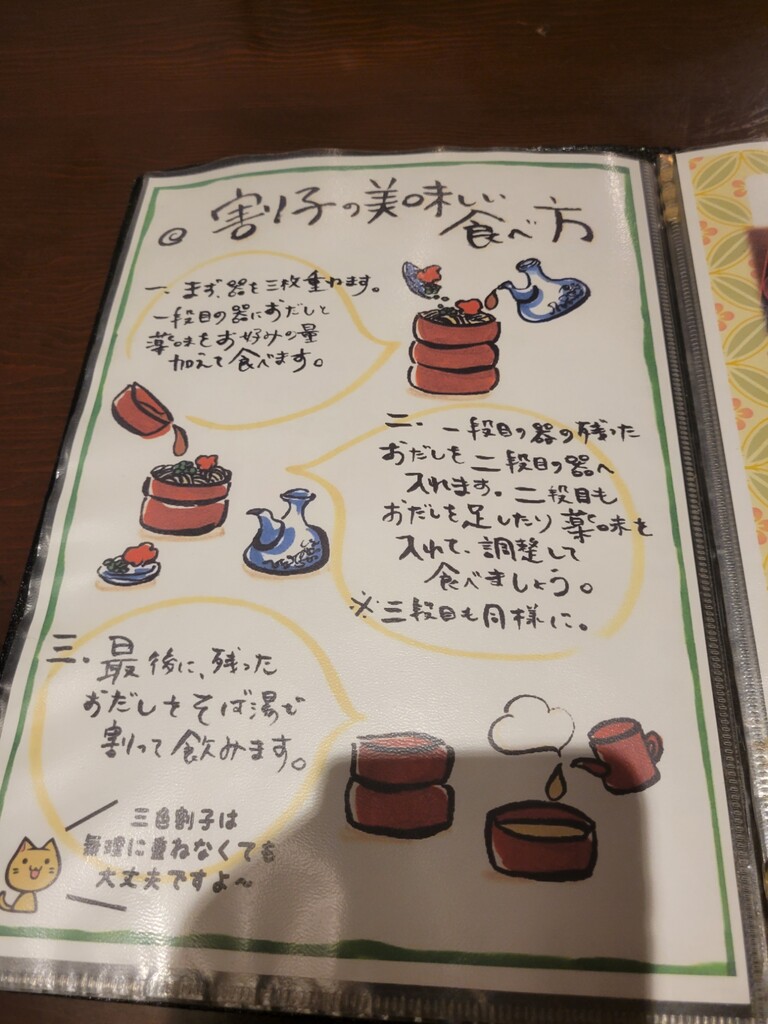 割子の美味しい
食べ方
一、まず、器を三枚重ねます。
一段目の器におだしと
薬味をお好みの量
加えて食べます。
二、一段目の器の残った
おだしを二段目の器へ
入れます。二段目も
おだしを足したり薬味を
入れて、調整して
食べましょう。
※三段目も同様に。
三、最後に、残った
おだしをそば湯で
割って飲みます。
三色割子は
無理に重ねなくても
大丈夫ですよ〜